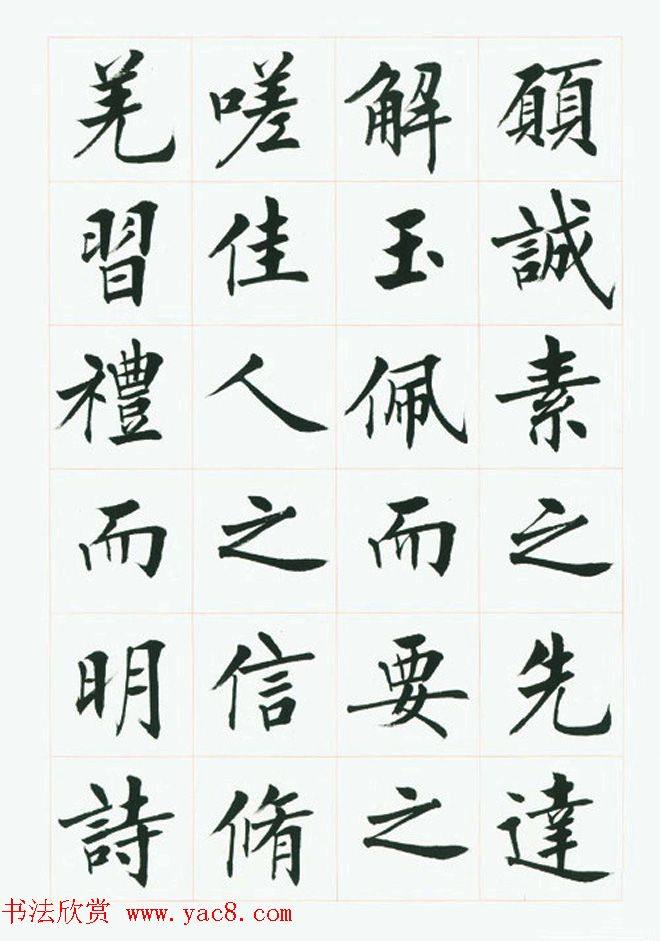 願誠素之先達
解玉佩而要之
嗟佳人之信脩
羌習禮而明詩
书法欣赏 www.yac8.com